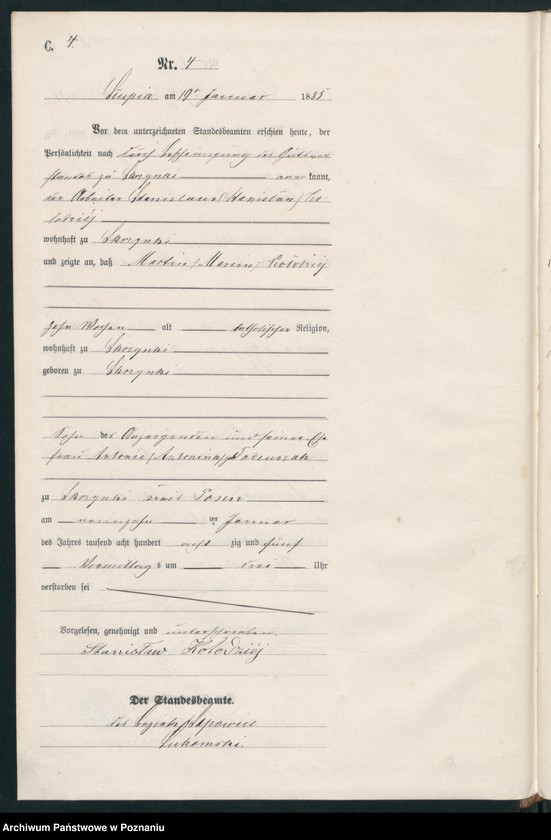 C. 4.
Nr. 4
Słupia am 19ten Januar 1885
Vor dem unterzeichneten Standesbeamten erschien heute, der
Persönlichkeit nach durch
zu Skrzynki kannt,
der Arbeiter Stanislaus (Stanisław) Ko-
łodziéj
wohnhaft zu Skrzynki
und zeigte an, daß Martin (Marcin) Kołodziéj
zehn Wochen alt katholischer Religion,
wohnhaft zu Skrzynki
geboren zu Skrzynki
Sohn des Anzeigenden und seiner Ehe-
frau Antonie (Antonina)
zu Skrzynki Kreis Posen
am neunzehn ten Januar
des Jahres tausend acht hundert acht zig und fünf
Vormittags um drei Uhr
verstorben sei
Vorgelesen, genehmigt und unterschrieben.
Stanisław Kołodziéj
Der Standesbeamte.
Archiwum Państwowe w Poznaniu